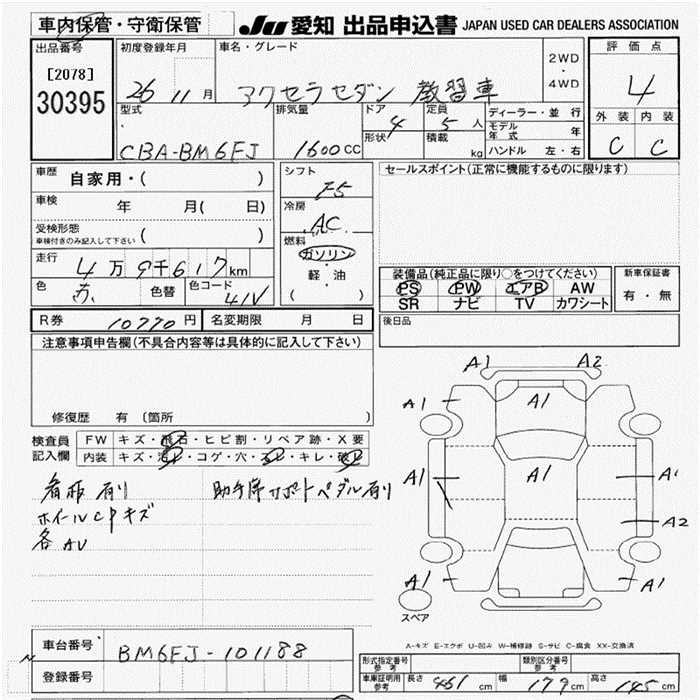 車内保管・守衛保管 JU 愛知 出品申込書 JAPAN USED CAR DEALERS ASSOCIATION
出品番号 初度登録年月 車名・グレード 評価点
[2078] 26 11月 アクセラセダン 教習車 2WD・4WD 4
30395
型式 排気量 ドア 定員 ディーラー・並行 外装 内装
CBA-BM6FJ 1600cc 4 5人 モデル年式 年 C C
形状 積載 kg ハンドル 左・右
車歴 自家用・( ) シフト F5 セールスポイント(正常に機能するものに限ります)
車検 年 月( 日) 冷房 AC
受検形態
車検付きのみ記入して下さい ( ) 燃料 ガソリン
走行 4万9千617km 軽・油 装備品(純正品に限り○をつけてください) 新車保証書
色 赤 色替 色コード 41V ( ) PS PW エアB AW 有・無
SR ナビ TV カワシート
R券 10770円 名変期限 月 日 後日品
注意事項申告欄(不具合内容等は具体的に記入して下さい)
修復歴 有 〔箇所 〕
検査員記入欄 FW キズ・飛石・ヒビ割・リペア跡・X要
内装 キズ・汚レ・コゲ・穴・スレ・キレ・破レ
看板有り 助手席サポートペダル有り
ホイールCPキズ
各AU
A1 A2
A1 A1
A1 A1 A1
A2
A1 A1
スペア
A-キズ E-エクボ U-凹み W-補修跡 S-サビ C-腐食 XX-交換済
車台番号 BM6FJ-101188
登録番号
型式指定番号 参考 類別区分番号 参考
車庫証明用 参考 長さ 461cm 幅 179cm 高さ 145cm